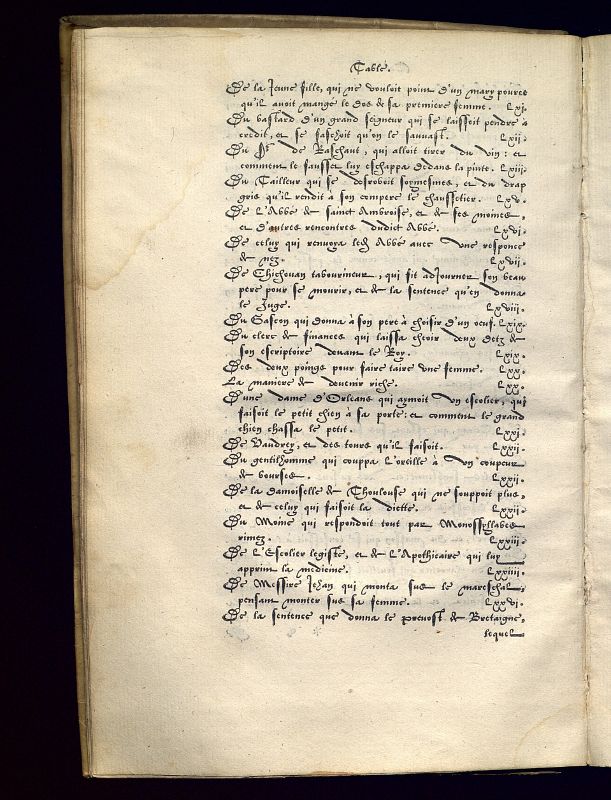 Table.
De la Jeune fille, qui ne vouloit point d'un mary pource
qu'il avoit mangé le dos de sa premiere femme. lxi.
Du bastard d'un grand seigneur qui se laissoit pendre à
credit, et se faschoit qu'on le sauvast. lxii.
Du Sr de Raschaut, qui alloit tirer du vin: et
comment le fausset luy eschappa dedans la pinte. lxiii.
Du Tailleur qui se desroboit soymesmes, et du drap
gris qu'il rendit à son compere le chaussetier. lxv.
De l'Abbé de sainct Ambroise, et de ses moines,
et d'autres rencontres dudict Abbé. lxvi.
De celuy qui renvoya led. Abbé avec une responce
de nez. lxvii.
De Chichouan tabourineur, qui fit adjourner son beau
pere pour se mourir, et de la sentence qu'en donna
le Juge. lxviii.
Du Gascon qui donna à son pere à choisir d'un oeuf. lxix.
Du clerc de finances qui laissa cheoir deux detz de
son escriptoire devant le Roy. lxix.
Des deux poings pour faire taire une femme. lxx.
La maniere de devenir riche. lxx.
D'une dame d'Orleans qui aymoit un escolier, qui
faisoit le petit chien à sa porte: et comment le grand
chien chassa le petit. lxxi.
De Vaudrey, et des tours qu'il faisoit. lxxii.
Du gentilhomme qui couppa l'oreille à un coupeur
de bourses. lxxii.
De la damoiselle de Thoulouse qui ne souppoit plus,
et de celuy qui faisoit la diette. lxxii.
Du Moine qui respondoit tout par Monossyllabes
rimez. lxxiii.
De l'Escolier legiste, et de l'Apothicaire qui luy
apprint la medicine. lxxiiii.
De Messire Jehan qui monta sus le mareschal,
pensant monter sus sa femme. lxxvi.
De la sentence que donna le prevost de Bretaigne,
lequel